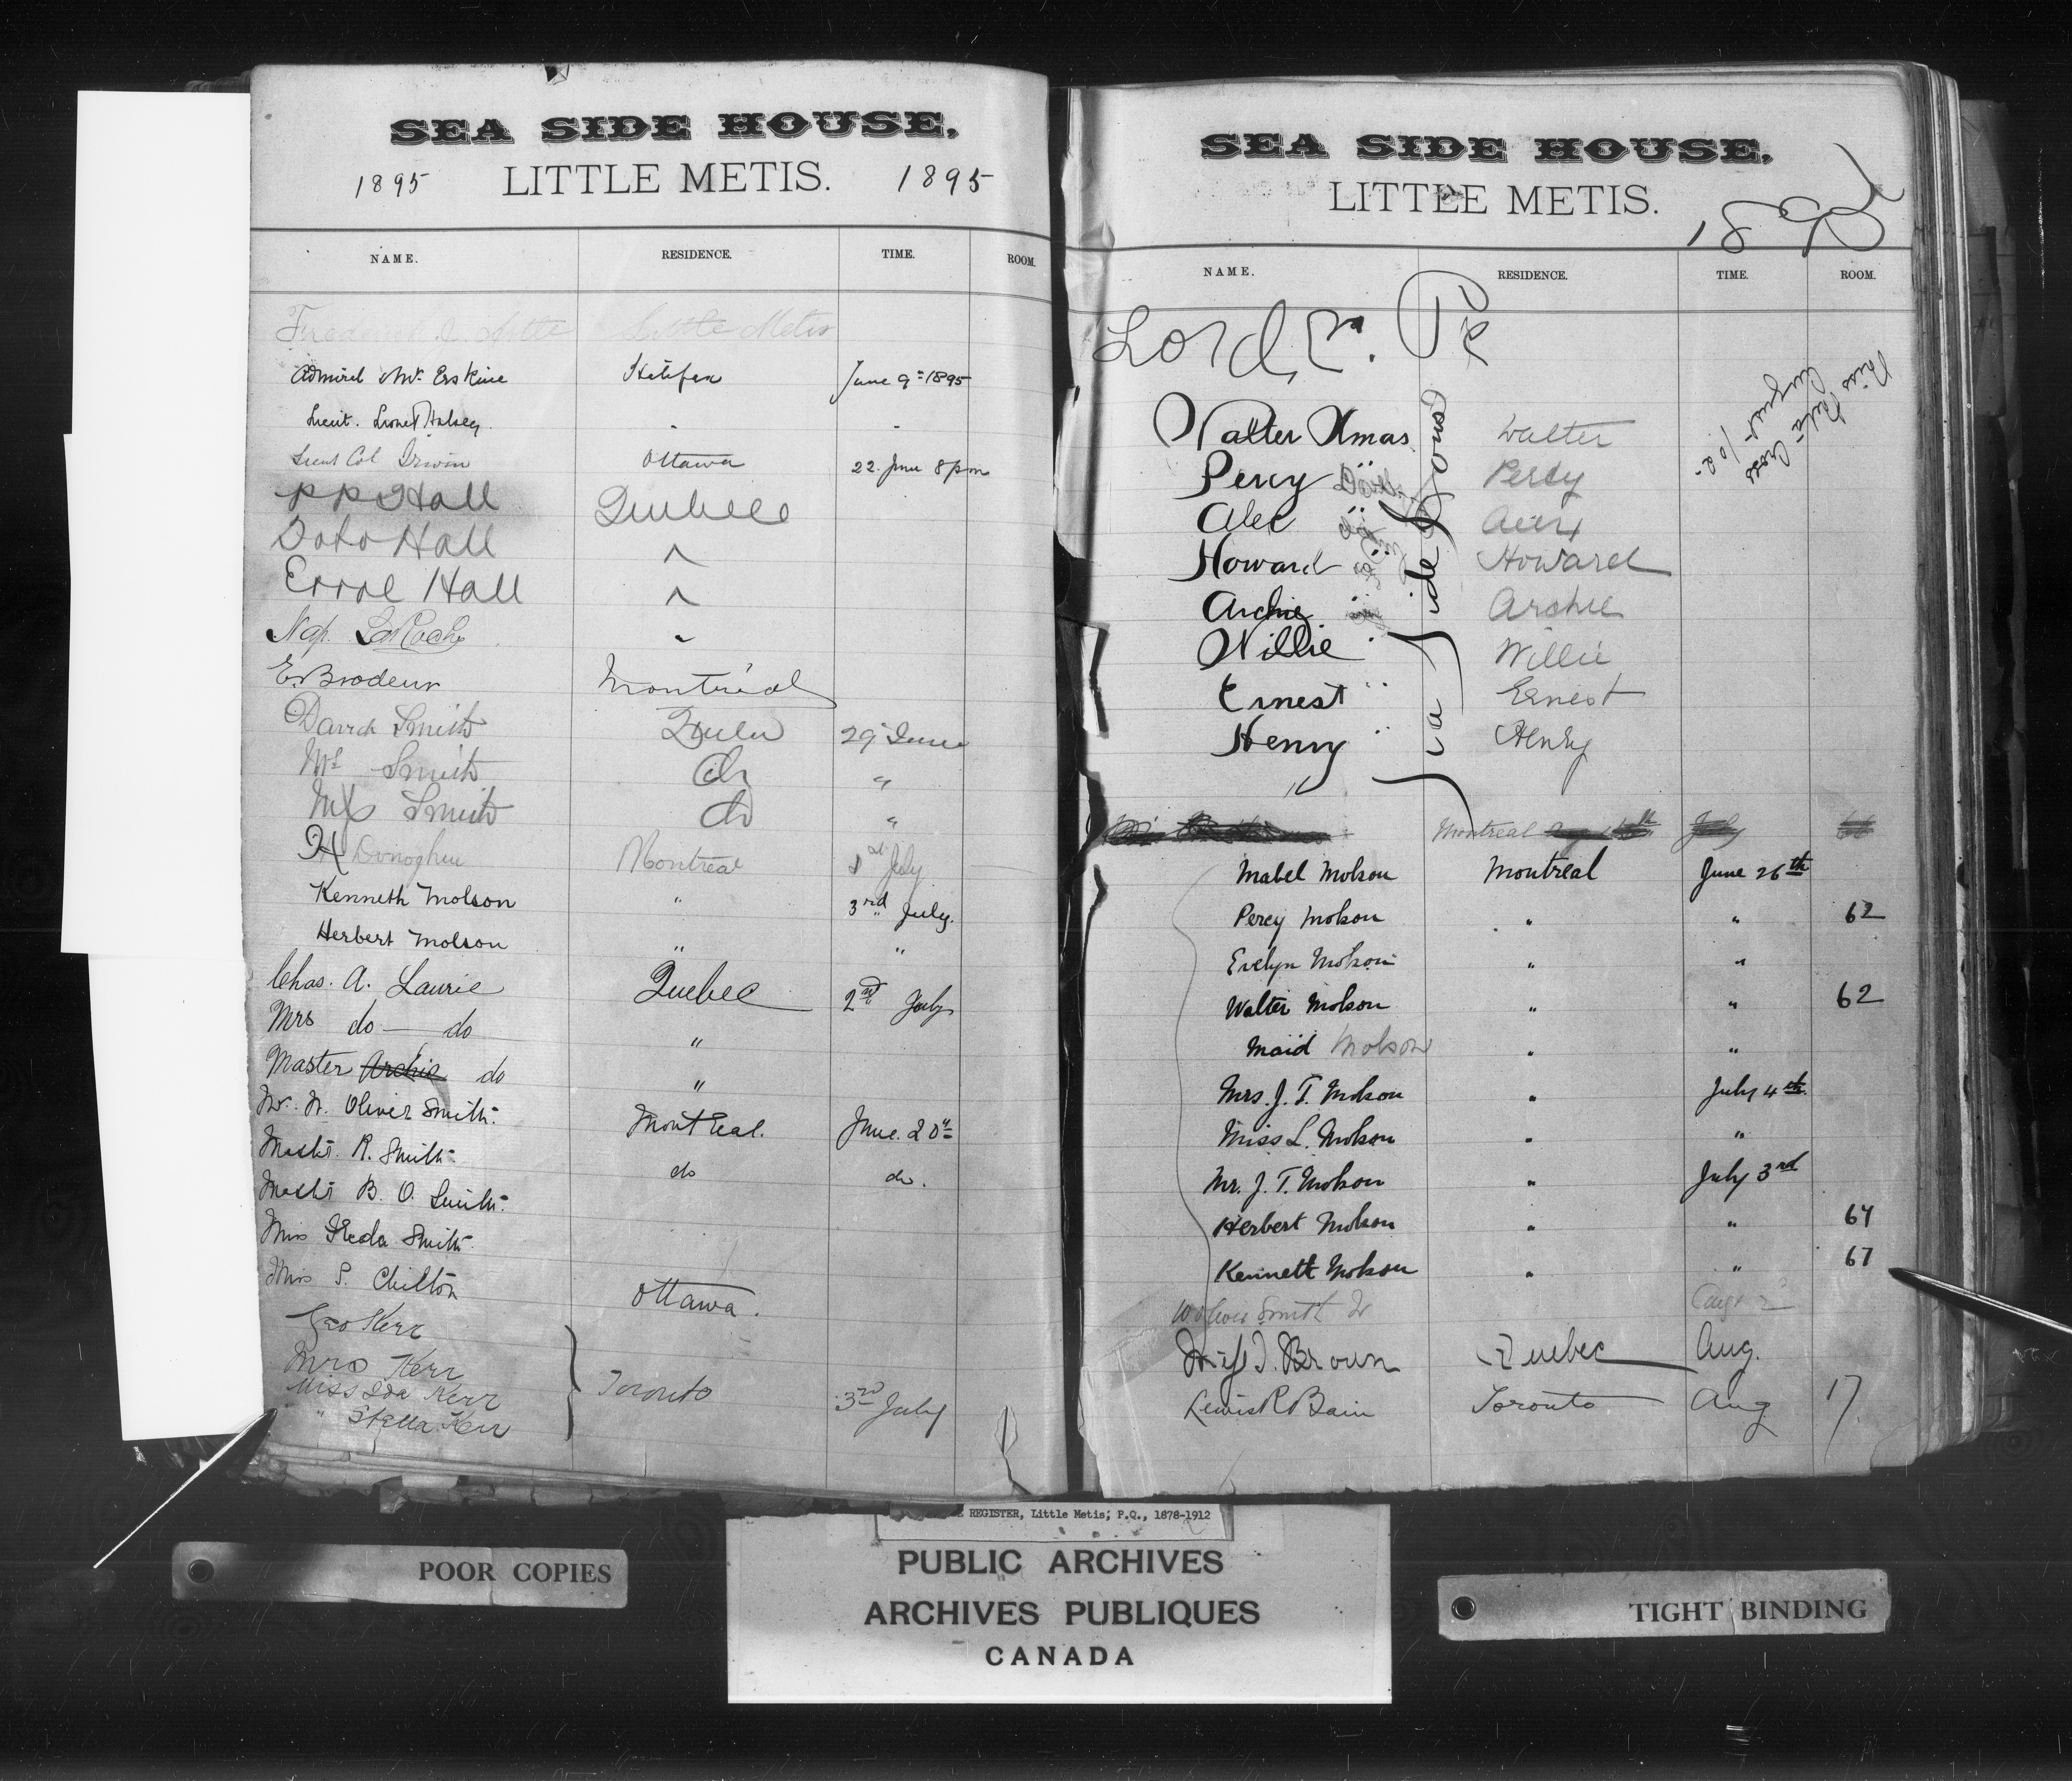 SEA SIDE HOUSE,
1895 LITTLE METIS. 1895
NAME. RESIDENCE. TIME. ROOM.
Little Metis
Admiral Erskine Halifax June 9th 1895
Lieut. Lionel Halsey. " "
Lieut Col Irwin Ottawa 22. June 8 pm
PP Hall Quebec
Doto Hall "
Errol Hall "
Nap. LaRoche "
E. Brodeur Montréal
David Smith 29 June
Smith do "
Smith do "
H Donoghue Montreal 1st July
Kenneth Molson " 3rd July.
Herbert Molson " "
Chas. A. Laurie Quebec 2nd July
Mrs do do "
Master Archie do "
Mr. W. Oliver Smith. Montreal. June. 20th
Master R. Smith. do do.
Master B. O. Smith.
Miss Smith.
Miss S. Chilton Ottawa.
Geo Kerr
Mrs Kerr
Miss Ida Kerr Toronto 3rd July
" Stella Kerr
SEA SIDE HOUSE,
LITTLE METIS. 1895
NAME. RESIDENCE. TIME. ROOM.
Lord,
Walter Xmas Walter
Percy " Percy
Alec "
Howard " Howard
Archie " Archie
Willie " Willie
Ernest " Ernest
Henry " Henry
Montreal July
Mabel Molson Montreal June 26th
Percy Molson " " 62
Evelyn Molson " "
Walter Molson " " 62
Maid Molson " "
Mrs. J. T. Molson " July 4th.
Miss L. Molson " "
Mr. J. T. Molson " July 3rd
Herbert Molson " " 64
Kenneth Molson " " 67
W Oliver Smith Jr Aug 2
Brown Quebec Aug.
Lewis R Bain Toronto Aug 17.
REGISTER, Little Metis; P.Q., 1878-1912
PUBLIC ARCHIVES
ARCHIVES PUBLIQUES
CANADA
POOR COPIES
TIGHT BINDING